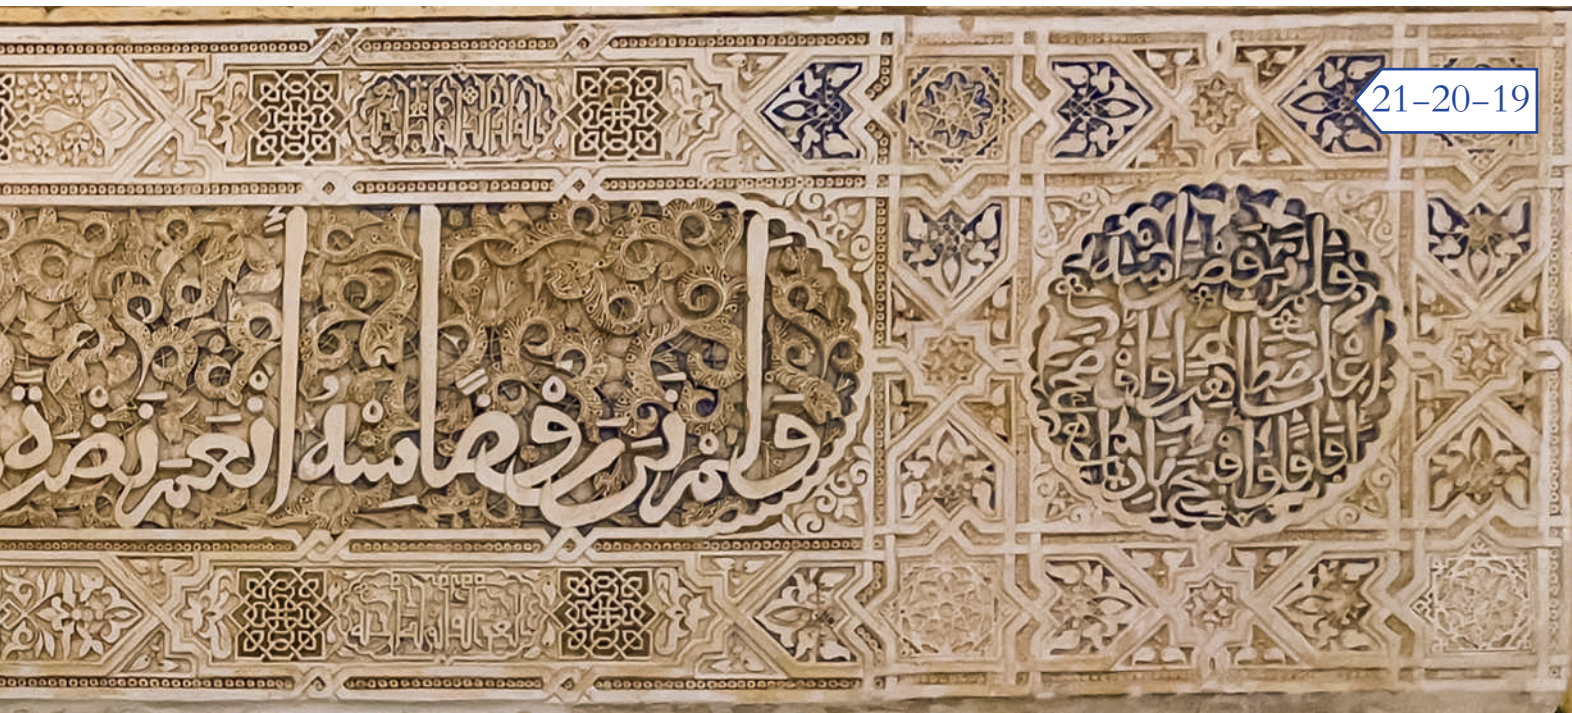 21–20–19
ولم نر قصرا منه
أعلى مظاهرا وأوضح
آفاقا وأفسح ناديا
وَلَمْ نَرَ رَوْضًا مِنْهُ أَنْعَمَ نَضْرَة